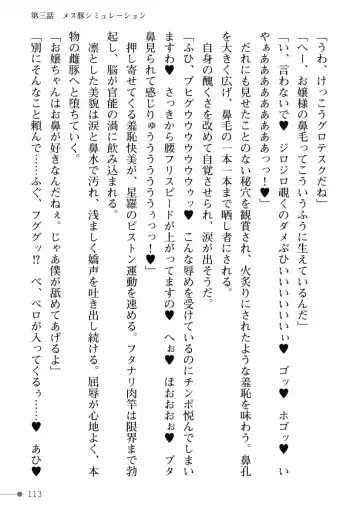 第三話　メス豚シミュレーション
「うわ、けっこうグロテスクだね」
「へぇ〜、お嬢様の鼻毛ってこういうふうに生えているんだ」
「い、言わないで♥　ジロジロ覗くのダメぶひぃいいいいいぃ♥　ゴッ♥　ホゴッ♥　い
やぁああああああぁっっ！」
だれにも見せたことのない秘穴を観賞され、火炙りにされたような羞恥を味わう。鼻孔
を大きく広げ、鼻毛の一本一本まで晒し者にされる。
自身の醜さを改めて自覚させられ、涙が出そうだ。
「ふひ、ブヒグウウウウウウゥッ♥　こんな辱めを受けているのにチンポ悦んでしまい
ますわ♥　さっきから腰フリスピードが上がってますの♥　へぉ♥　ほおおおぉ♥　ブタ
鼻見られて感じりゅうううううううぅっつ！♥」
押し寄せてくる羞恥快美が、星羅のピストン運動を速める。フタナリ肉竿は限界まで勃
起し、脳が官能の渦に飲み込まれる。
凛とした美貌は涙と鼻水で汚れ、浅ましく嬌声を吐き出し続ける。屈辱が心地よく、本
物の雌豚へと堕ちていく。
「お嬢ちゃんはお鼻が好きなんだねぇ。じゃあ僕が舐めてあげるよ」
「別にそんなこと頼んで……ふぐ、フググッ!?　べ、ベロが入ってくるぅ……♥　あひ♥
113